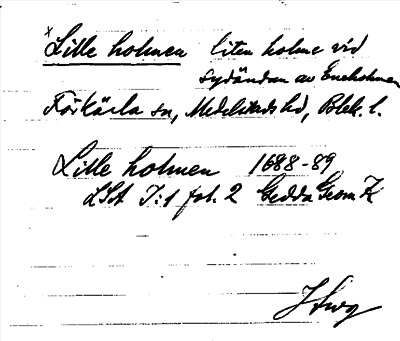 x Lille holmen liten holme vid
sydändan av Eneholmen
Förkärla sn, Medelstads hd, Blek. l.
Lille holmen 1688-89
LSA I:1 fol. 2 Gedda Geom K